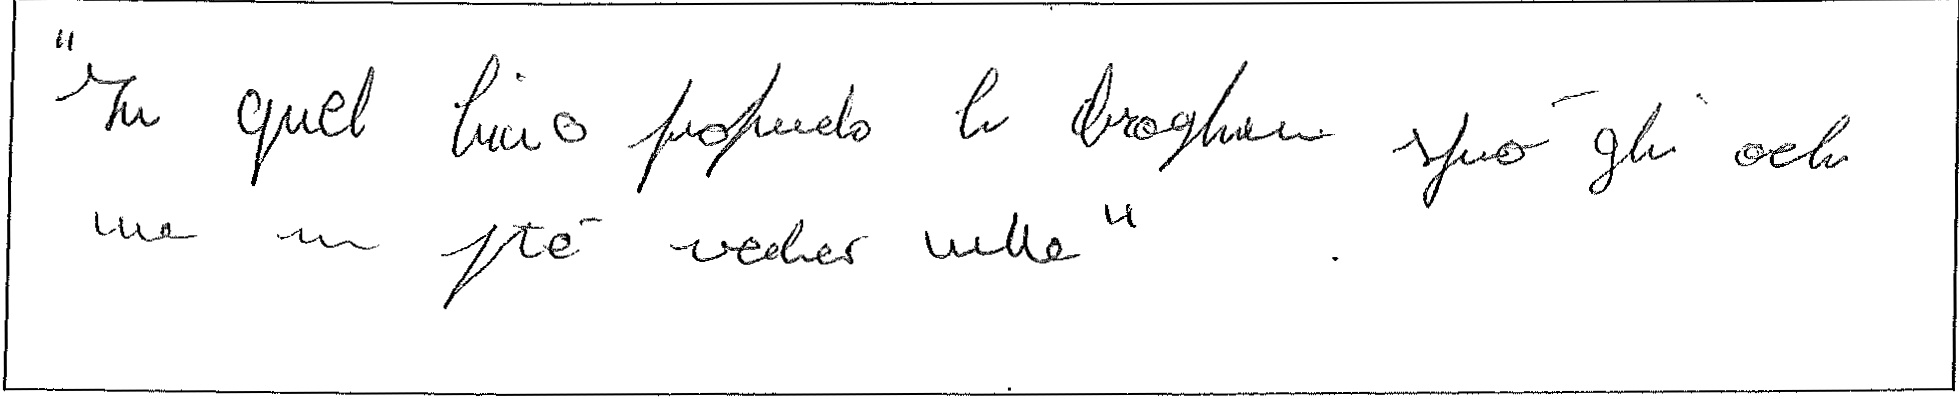 "In quel buio profondo lo Braghieri sfuò gli occhi
ma non potè veder nulla"